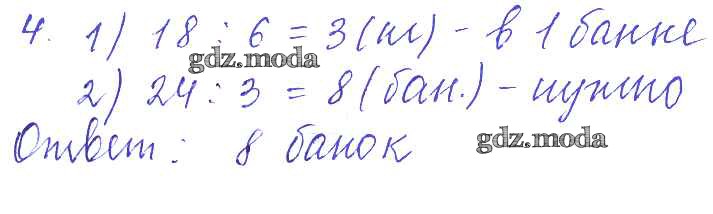 4. 1) 18 : 6 = 3 (кг) - в 1 банке
gdz.moda
2) 24 : 3 = 8 (бан.) - нужно
Ответ: 8 банок
gdz.moda